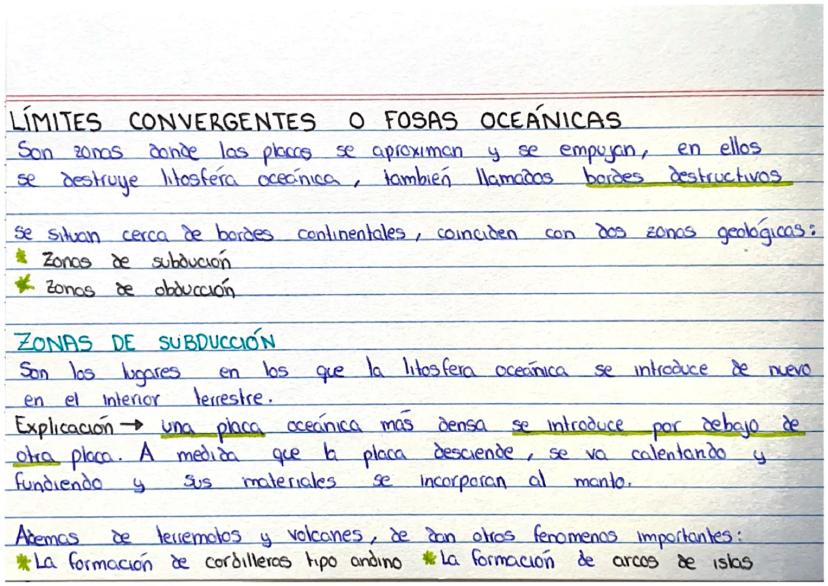 LÍMITES CONVERGENTES O FOSAS OCEÁNICAS
Son zonas donde las placas se aproximan y se empujan, en ellos
se destruye litosfera oceánica, también llamados bordes destructivos
se situan cerca de bordes continentales, coinciden con dos zonas geológicas:
* Zonas de subdución
* Zonas de obducción
ZONAS DE SUBDUCCIÓN
Son los lugares en los que la litosfera oceánica se introduce de nuevo
en el interior terrestre.
Explicación → una placa oceánica más densa se introduce por debajo de
otra placa. A medida que la placa desciende, se va calentando y
fundiendo y sus materiales se incorporan al manto.
Ademas de terremotos y volcanes, de dan otros fenomenos importantes:
* La formación de cordilleras tipo andino * La formación de arcos de islas